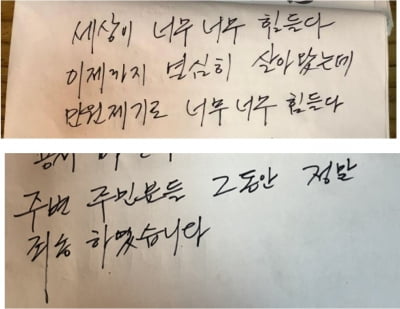 세상이 너무 너무 힘들다
이제까지 열심히 살아 왔는데
만원제기로 너무 너무 힘들다
주변 주민분들 그동안 정말
죄송 하였습니다